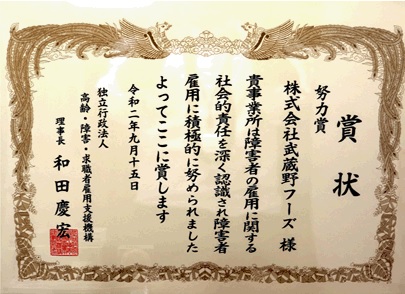 賞状
努力賞
株式会社武蔵野フーズ 様
貴事業所は障害者の雇用に関する
社会的責任を深く認識され障害者
雇用に積極的に努められました
よってここに賞します
令和二年九月十五日
独立行政法人
高齢・障害・求職者雇用支援機構
理事長 和田慶宏